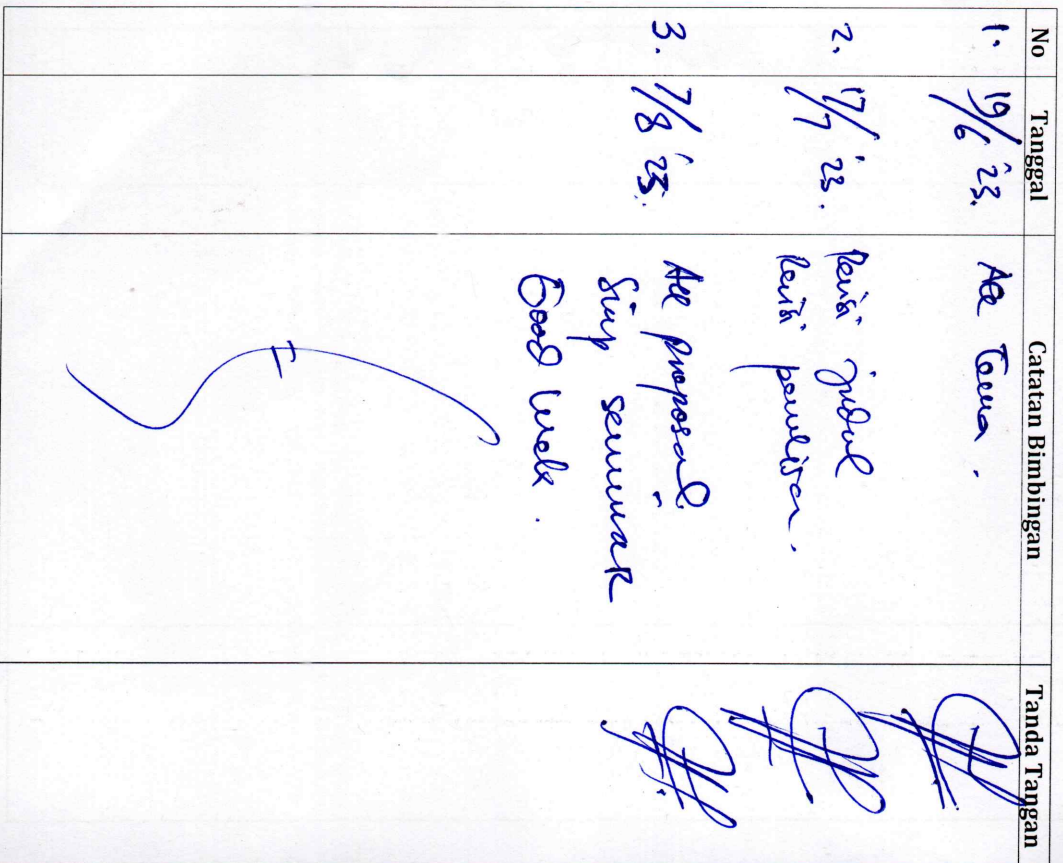 No Tanggal Catatan Bimbingan Tanda Tangan
1. 19/6 '23. Acc Tema.
2. 17/7 '23. Revisi judul
Revisi penulisan.
3. 7/8 '23. Acc proposal.
Siap seminar
Good luck.